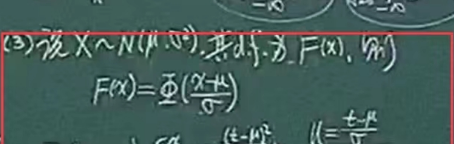 (3)设 X~N(μ,σ²),其d.f.为 F(x),则
F(x)=Φ((x-μ)/σ)
(t-μ)² u=(t-μ)/σ